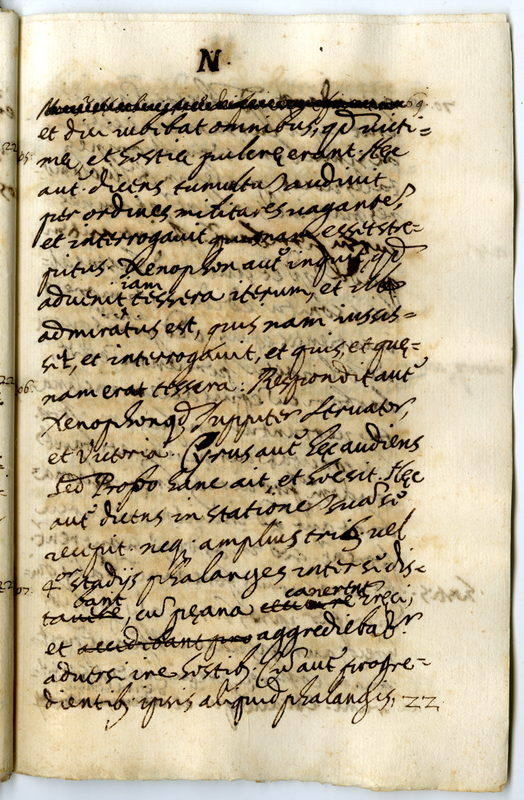 N
69.
et dici iubebat omnibus, qd victi=
mę, et hostię pulcrę erant. Hęc
aut dicens tumultū audivit
per ordines militares vagante,
et interrogavit esset stre=
pitus. Xenophon aut inquit, qd
iam
advenit tessera iterum, et
admiratus est, quis nam iussis=
sit, et interrogavit, et quis, et quę=
nam erat tessera: Respondit aut
Xenophon qd Juppiter Servator,
et Victoria. Cyrus aut hęc audiens
sed probo hanc ait, et hoc sit. Hęc
aut dicens in stationē suā sē
recepit. neq; amplius trib, vel
4or stadijs phalanges inter sē dis=
bant canerent
, cū pęana Gręci,
et accedibant aggrediebatr
adversi ire hostib. Cū aut progre=
dientib. ipsis aliquid phalangis, 22